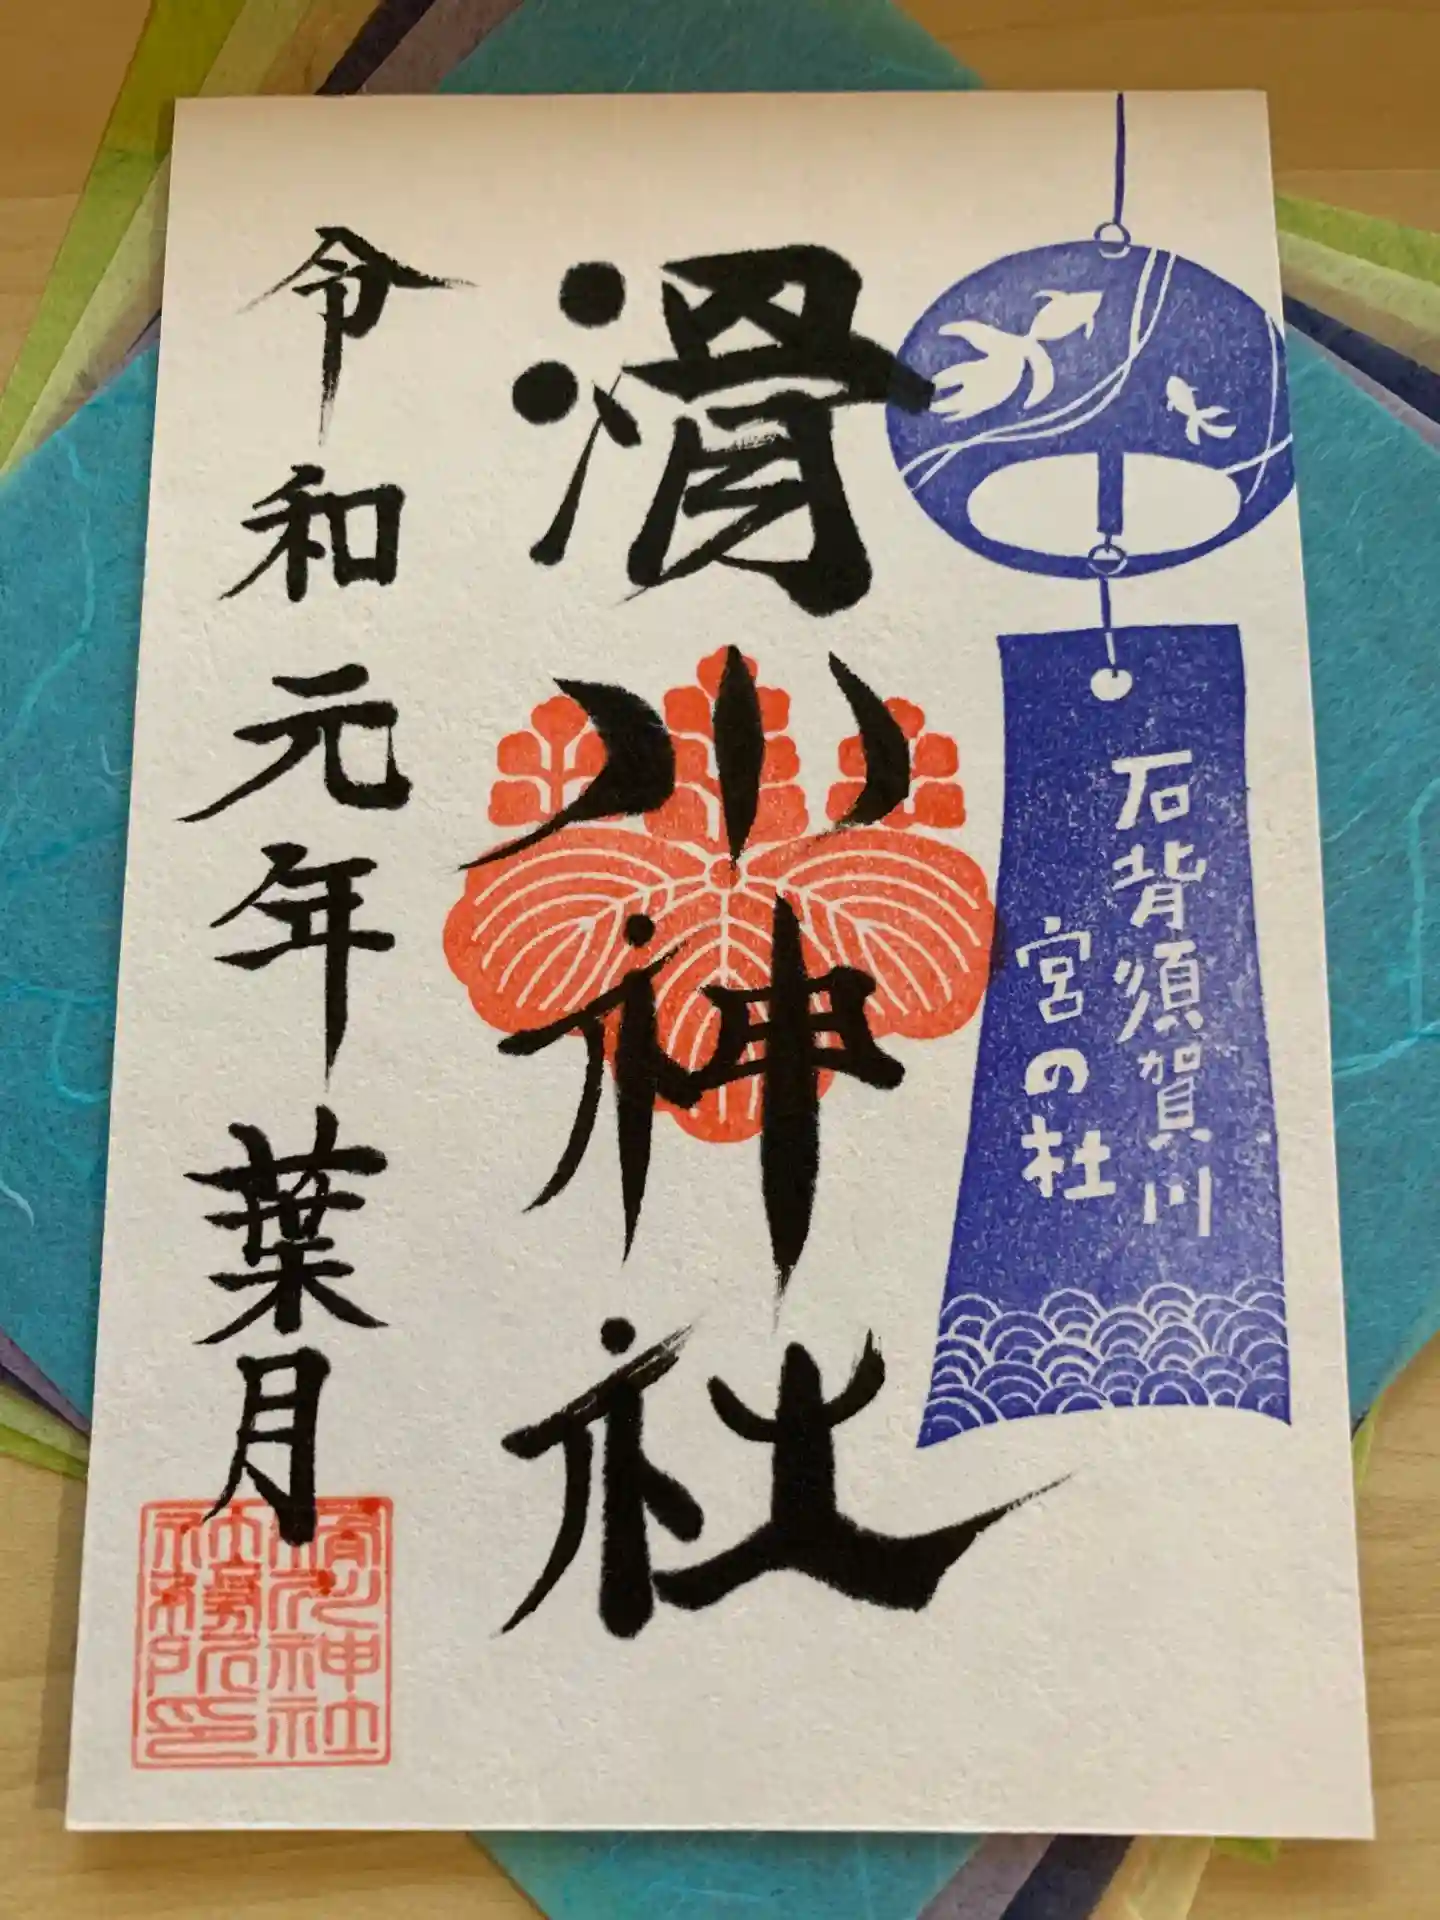 石背須賀川
宮の杜
滑川神社
令和元年葉月